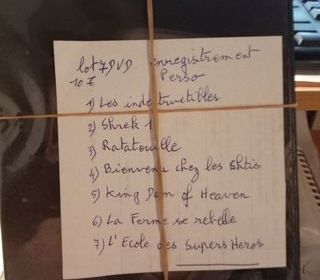 lot 7 DVD enregistrement
10 € Perso
1) Les indestructibles
2) Shrek 1
3) Ratatouille
4) Bienvenu chez les Shtis
5) King Dom of Heaven
6) La Ferme se rebelle
7) L'Ecole des Supers Heros